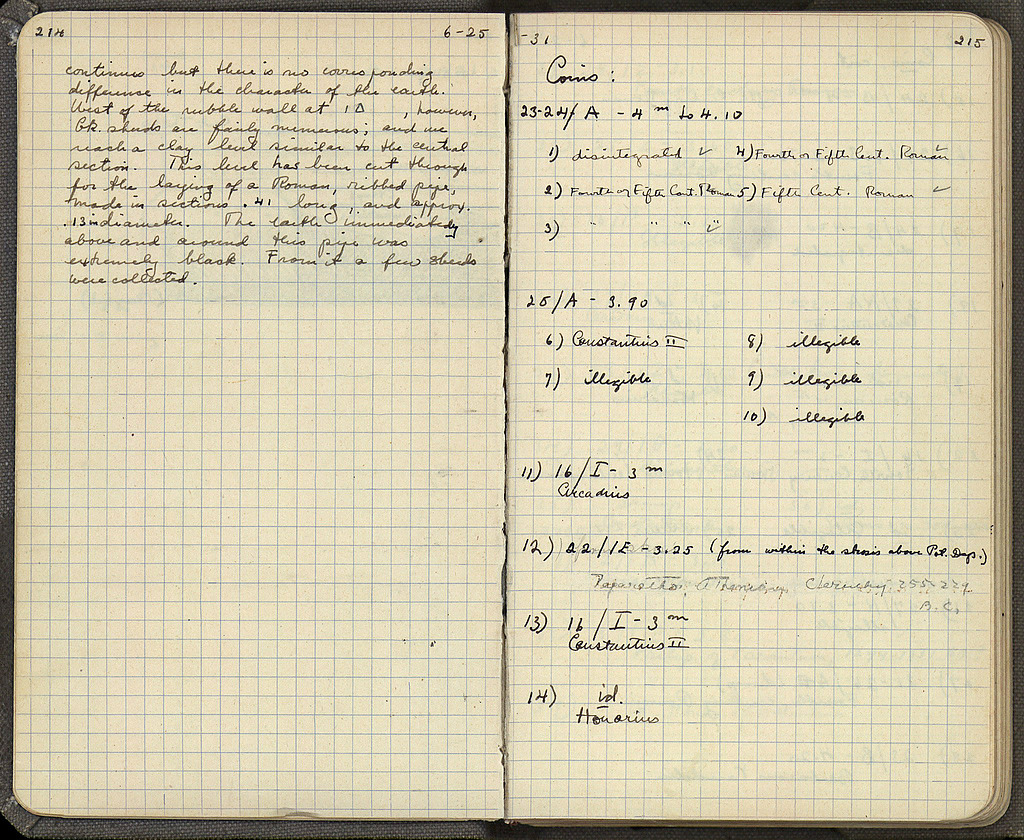 214
6-25
continues but there is no corresponding
difference in the character of the earth.
West of the rubble wall at 1Δ , however,
Gk. sherds are fairly numerous; and we
reach a clay level similar to the central
section. This level has been cut through
for the laying of a Roman, ribbed pipe,
made in sections .41 long, and approx.
.13 in diameter. The earth immediately
above and around this pipe was
extremely black. From it a few sherds
were collected.
-31
215
Coins:
23-24/A - 4 m to 4.10
1) disintegrated ✓ 4) Fourth or Fifth Cent. Roman ✓
2) Fourth or Fifth Cent. Roman 5) Fifth Cent. Roman ✓
3) " " " " ✓
25/A - 3.90
6) Constantius II 8) illegible
7) illegible 9) illegible
10) illegible
11) 16/I - 3 m
Arcadius
12) 22/IE - 3.25 (from within the stosis above Pot. Dep.)
Cleruchy 255-229
B.C.
13) 16/I - 3 m
Constantius II
14) id.
Honorius